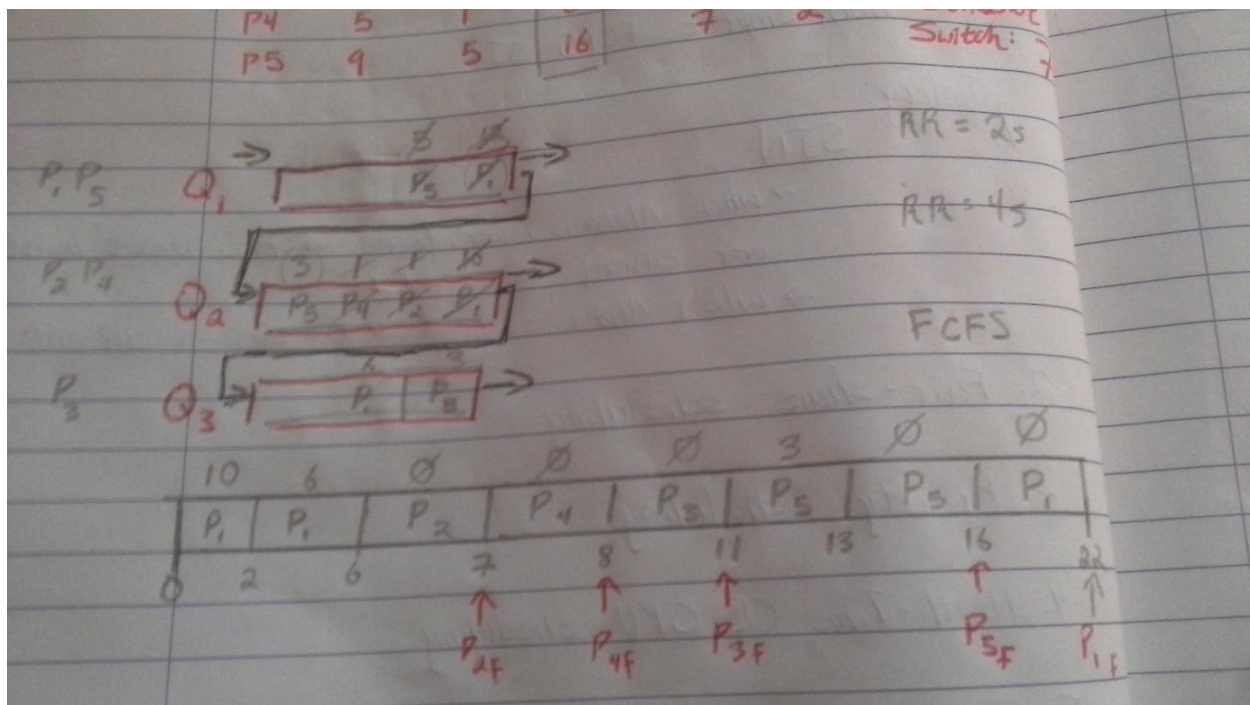 P4 5 1 7 2
P5 9 5 16 Switch: 7
RR = 2s
5 12
P1 P5 Q1 P5 P1
RR = 4s
3 1 1 10
P2 P4 Q2 P5 P4 P2 P1
FCFS
3
P3 Q3 P1 P3
10 6 Ø Ø Ø 3 Ø Ø
P1 P1 P2 P4 P3 P5 P5 P1
0 2 6 7 8 11 13 16 22
P2F P4F P3F P5F P1F